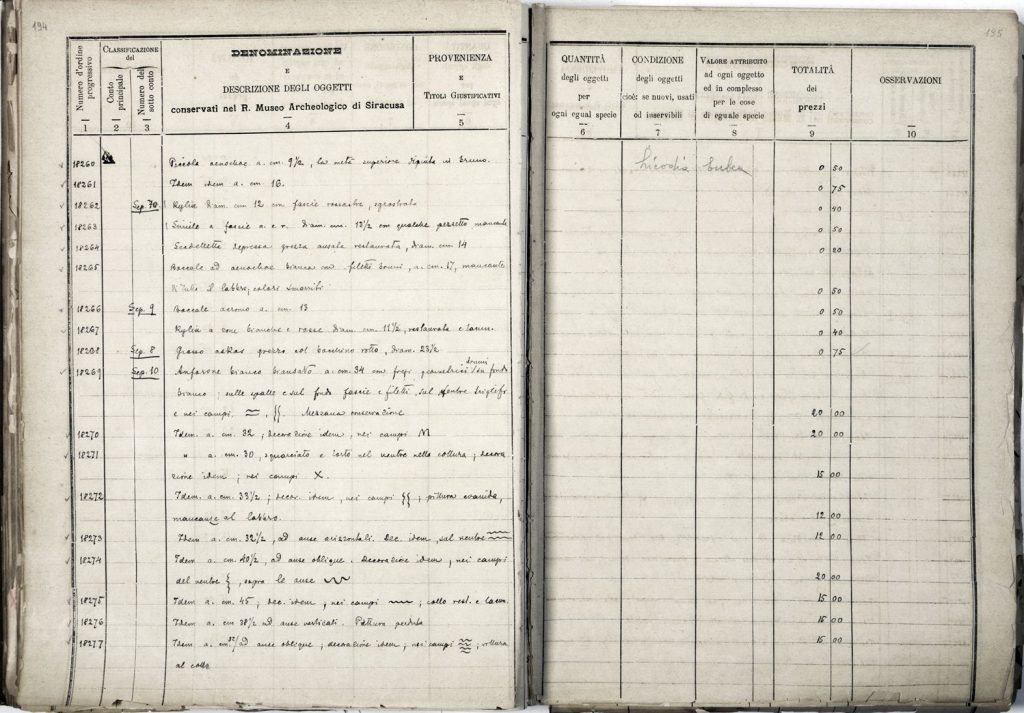 194
Numero d'ordine progressivo
CLASSIFICAZIONE
del
Conto principale
Numero del sotto conto
DENOMINAZIONE
E
DESCRIZIONE DEGLI OGGETTI
conservati nel R. Museo Archeologico di Siracusa
PROVENIENZA
E
TITOLI GIUSTIFICATIVI
1 2 3 4 5
18260 Piccola oenochoe a. cm. 9 1/2, la metà superiore dipinta in bruno.
18261 Idem idem a. cm. 16.
18262 Sep. 70 Kylix diam. cm 12 con fascie rossastre, sgrostrata
18263 Simile a fascie a. e r. diam. cm. 12 1/2 con qualche pezzetto mancante
18264 Scodelletta depressa grezza ansata restaurata, diam. cm. 14
18265 Boccale ad oenochoe bianca con filetti bruni, a. cm. 17, mancante
di tutto il labbro; colori smarriti
18266 Sep. 9 Boccale acromo a. cm. 13
18267 Kylix a zone bianche e rosse diam. cm. 11 1/2, restaurata e lacun.
18268 Sep. 8 Grosso askos grezzo col bocchino rotto, diam. 23 1/2
18269 Sep. 10 Anforone bianco a. cm. 34 con fregi geometrici bruni su fondo
bianco; sulle spalle e sul fondo fascie e filetti, sul ventre triglifi
e nei campi ≈, ʃʃ. Mezzana conservazione
18270 Idem. a. cm. 32; decorazione idem, nei campi M
18271 " a. cm. 30, squarciato e torto nel ventre nella cottura; decora
zione idem; nei campi X.
18272 Idem. a. cm. 33 1/2; decor. idem, nei campi ʃʃ; pittura evanida,
mancanze al labbro.
18273 Idem a. cm. 32 1/2, ad anse orizzontali. Dec. idem, sul ventre ≈
18274 Idem a. cm. 40 1/2, ad anse oblique. Decorazione idem, nei campi
del ventre {, sopra le anse 〰
18275 Idem a. cm. 45; dec. idem; nei campi 〰; collo rest. e lacun.
18276 Idem a. cm 38 1/2 ad anse verticali. Pittura perduta
18277 Idem a. cm. ad anse oblique; decorazione idem; nei campi ≋; rottura
al collo
195
QUANTITÀ
degli oggetti
per
ogni egual specie
CONDIZIONE
degli oggetti
cioè: se nuovi, usati
od inservibili
VALORE ATTRIBUITO
ad ogni oggetto
ed in complesso
per le cose
di eguale specie
TOTALITÀ
dei
prezzi
OSSERVAZIONI
6 7 8 9 10
Licodia Eubea 0 50
0 75
0 40
0 50
0 20
0 50
0 50
0 40
0 75
20 00
20 00
15 00
12 00
12 00
20 00
15 00
15 00
15 00